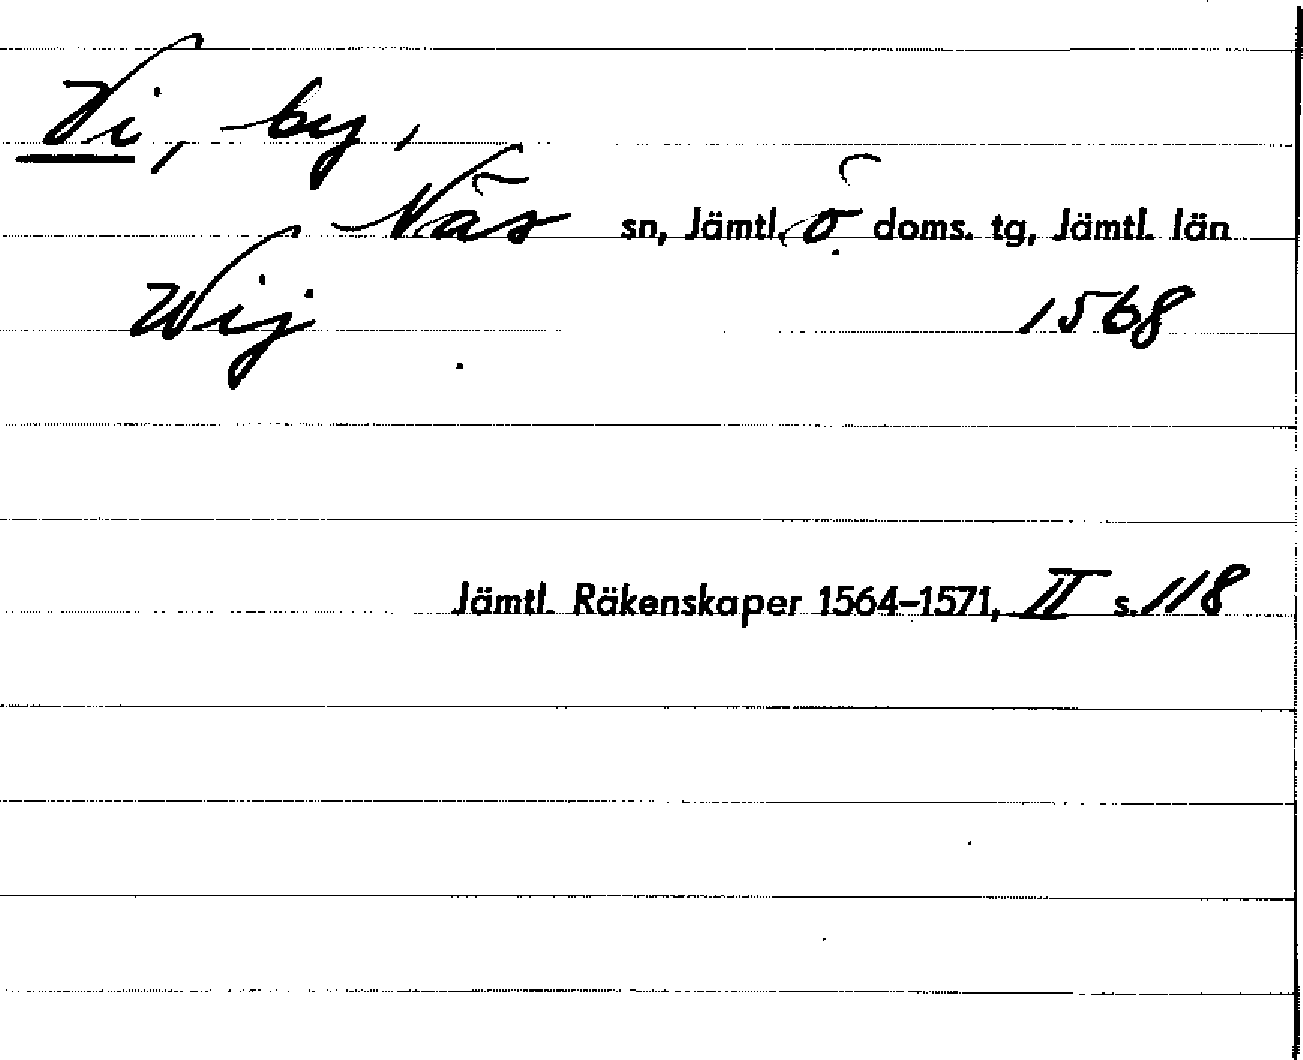 Vi, by,
Näs sn, Jämtl. ö doms. tg, Jämtl. län
Wij 1568
Jämtl. Räkenskaper 1564–1571, II s. 118